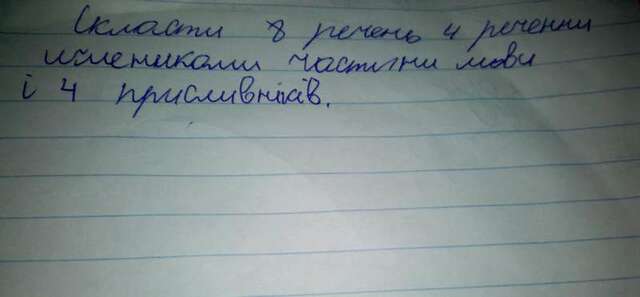 Скласти 8 речень 4 речення
іменниками частини мови
і 4 прислівників.